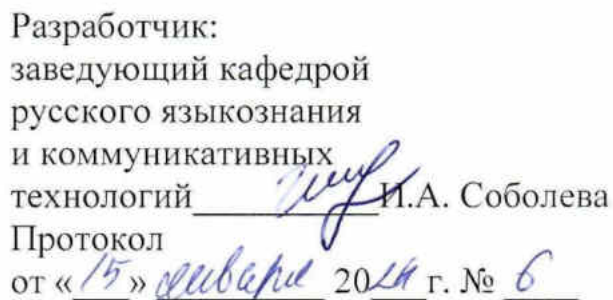 Разработчик:
заведующий кафедрой
русского языкознания
и коммуникативных
технологий__________И.А. Соболева
Протокол
от «15» января 2024 г. № 6